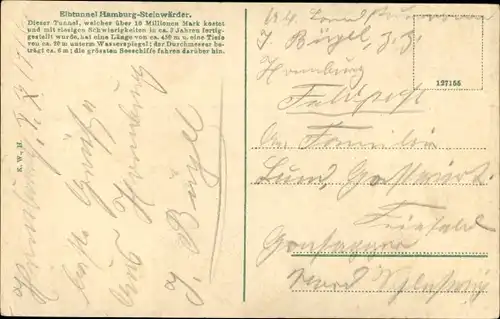 Elbtunnel Hamburg-Steinwärder.
Dieser Tunnel, welcher über 10 Millionen Mark kostet
und mit riesigen Schwierigkeiten in ca. 3 Jahren fertig-
gestellt wurde, hat eine Länge von ca. 450 m u. eine Tiefe
von ca. 20 m unterm Wasserspiegel: der Durchmesser be-
trägt ca. 6 m; die grössten Seeschiffe fahren darüber hin.
K. W., H.
127155
Hamburg
Grüße
aus Hamburg
J. Bügel
J. Bügel, z. Z.
Hamburg
Feldpost
An Familie
Lund, Gastwirt
Nord Schleswig